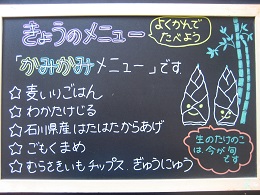 きょうのメニュー
よくかんで
たべよう
「かみかみメニュー」です
☆麦しいごはん
☆わかたけじる
☆石川県産はたはたからあげ
☆ごもくまめ
☆むらさきいもチップス.ぎゅうにゅう
生のたけのこ
は、今が旬
です